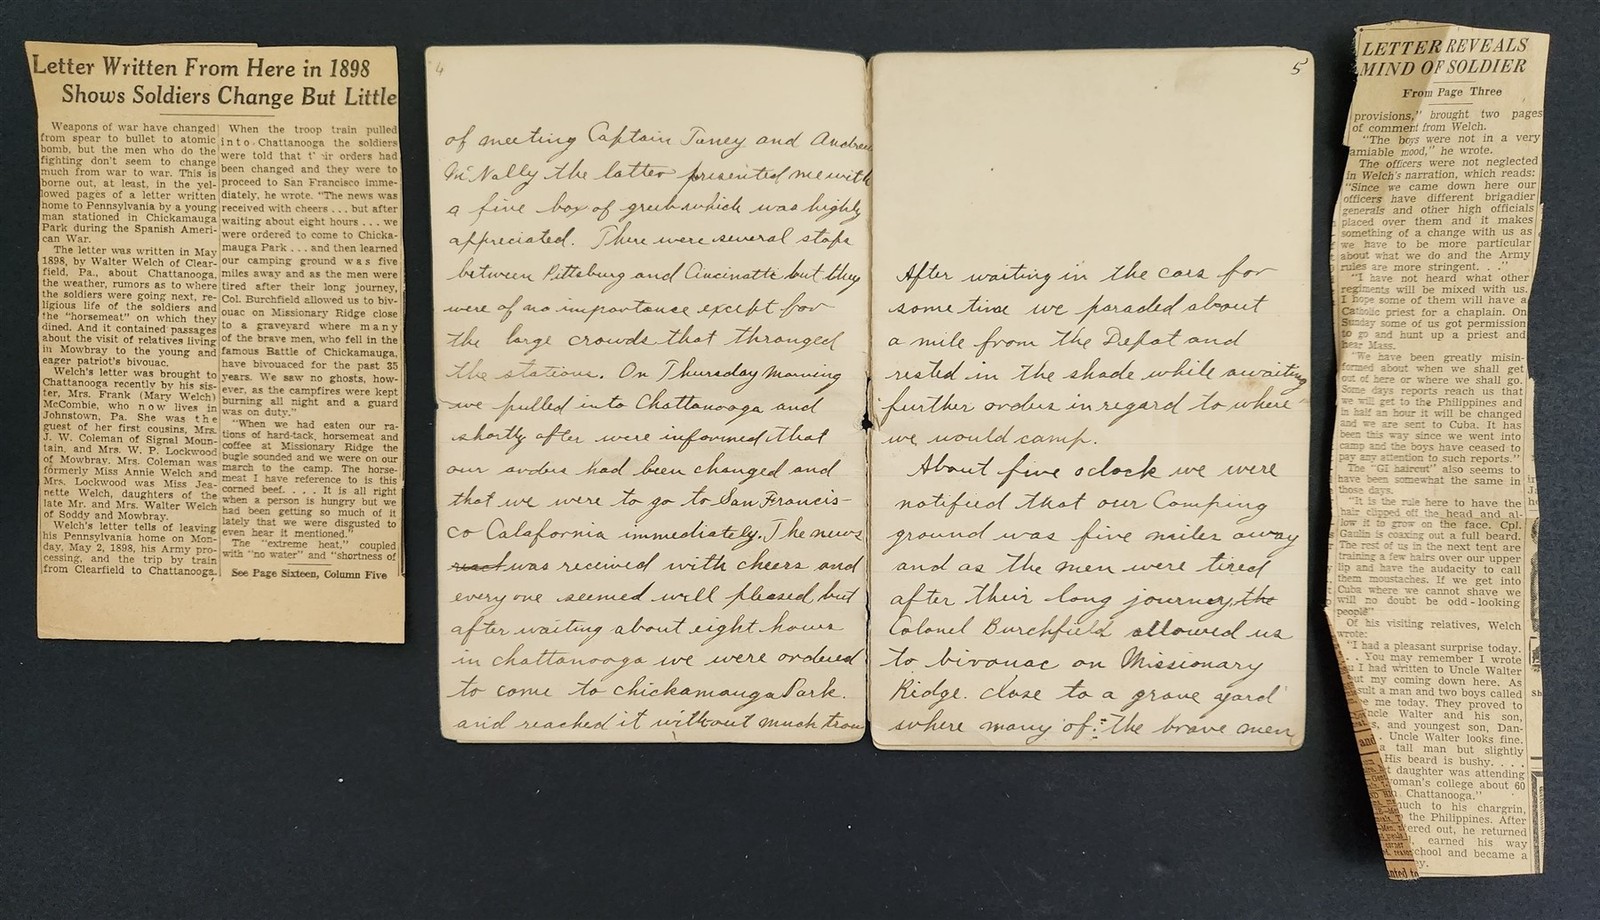 Letter Written From Here in 1898
Shows Soldiers Change But Little
Weapons of war have changed
from spear to bullet to atomic
bomb, but the men who do the
fighting don't seem to change
much from war to war. This is
borne out, at least, in the yel-
lowed pages of a letter written
home to Pennsylvania by a young
man stationed in Chickamauga
Park during the Spanish Ameri-
can War.
The letter was written in May
1898, by Walter Welch of Clear-
field, Pa., about Chattanooga,
the weather, rumors as to where
the soldiers were going next, re-
ligious life of the soldiers and
the "horsemeat" on which they
dined. And it contained passages
about the visit of relatives living
in Mowbray to the young and
eager patriot's bivouac.
Welch's letter was brought to
Chattanooga recently by his sis-
ter, Mrs. Frank (Mary Welch)
McCombie, who now lives in
Johnstown, Pa. She was the
guest of her first cousins, Mrs.
J. W. Coleman of Signal Moun-
tain, and Mrs. W. P. Lockwood
of Mowbray. Mrs. Coleman was
formerly Miss Annie Welch and
Mrs. Lockwood was Miss Jea-
nette Welch, daughters of the
late Mr. and Mrs. Walter Welch
of Soddy and Mowbray.
Welch's letter tells of leaving
his Pennsylvania home on Mon-
day, May 2, 1898, his Army pro-
cessing, and the trip by train
from Clearfield to Chattanooga.
When the troop train pulled
into Chattanooga the soldiers
were told that their orders had
been changed and they were to
proceed to San Francisco imme-
diately, he wrote. "The news was
received with cheers . . . but after
waiting about eight hours . . . we
were ordered to come to Chicka-
mauga Park . . . and then learned
our camping ground was five
miles away and as the men were
tired after their long journey,
Col. Burchfield allowed us to biv-
ouac on Missionary Ridge close
to a graveyard where many
of the brave men, who fell in the
famous Battle of Chickamauga,
have bivouaced for the past 35
years. We saw no ghosts, how-
ever, as the campfires were kept
burning all night and a guard
was on duty."
"When we had eaten our ra-
tions of hard-tack, horsemeat and
coffee at Missionary Ridge the
bugle sounded and we were on our
march to the camp. The horse-
meat I have reference to is this
corned beef. . . . It is all right
when a person is hungry but we
had been getting so much of it
lately that we were disgusted to
even hear it mentioned."
The "extreme heat," coupled
with "no water" and "shortness of
See Page Sixteen, Column Five
4
of meeting Captain Taney and Andrew
McNally the latter presented me with
a fine box of grub which was highly
appreciated. There were several stops
between Pittsburg and Cincinatti but they
were of no importance except for
the large crowds that thronged
the stations. On Thursday morning
we pulled into Chattanooga and
shortly after were informed that
our orders had been changed and
that we were to go to San Francis-
co Calafornia immediately. The news
was received with cheers and
everyone seemed well pleased but
after waiting about eight hours
in chattanooga we were ordered
to come to chickamauga Park.
and reached it without much trou
5
After waiting in the cars for
some time we paraded about
a mile from the Depot and
rested in the shade while awaiting
further orders in regard to where
we would camp.
About five oclock we were
notified that our Camping
ground was five miles away
and as the men were tired
after their long journey, the
Colonel Burchfield allowed us
to bivouac on Missionary
Ridge. close to a grave yard
where many of the brave men
LETTER REVEALS
MIND OF SOLDIER
From Page Three
provisions," brought two pages
of comment from Welch.
"The boys were not in a very
amiable mood," he wrote.
The officers were not neglected
in Welch's narration, which reads:
"Since we came down here our
officers have different brigadier
generals and other high officials
placed over them and it makes
something of a change with us as
we have to be more particular
about what we do and the Army
rules are more stringent. . ."
"I have not heard what other
regiments will be mixed with us.
I hope some of them will have a
Catholic priest for a chaplain. On
Sunday some of us got permission
to go and hunt up a priest and
hear Mass.
"We have been greatly misin-
formed about when we shall get
out of here or where we shall go.
Some days reports reach us that
we will get to the Philippines and
in half an hour it will be changed
and we are sent to Cuba. It has
been this way since we went into
camp and the boys have ceased to
pay any attention to such reports."
The "GI haircut" also seems to
have been somewhat the same in
those days.
"It is the rule here to have the
hair clipped off the head and al-
low it to grow on the face. Cpl.
Gaulin is coaxing out a full beard.
The rest of us in the next tent are
training a few hairs over our upper
lip and have the audacity to call
them moustaches. If we get into
Cuba where we cannot shave we
will no doubt be odd-looking
people"
Of his visiting relatives, Welch
wrote:
"I had a pleasant surprise today.
. . You may remember I wrote
I had written to Uncle Walter
my coming down here. As
a man and two boys called
me today. They proved to
Uncle Walter and his son,
and youngest son, Dan-
Uncle Walter looks fine.
a tall man but slightly
His beard is bushy. . . .
daughter was attending
woman's college about 60
Chattanooga."
much to his chargrin,
the Philippines. After
he returned
earned his way
school and became a